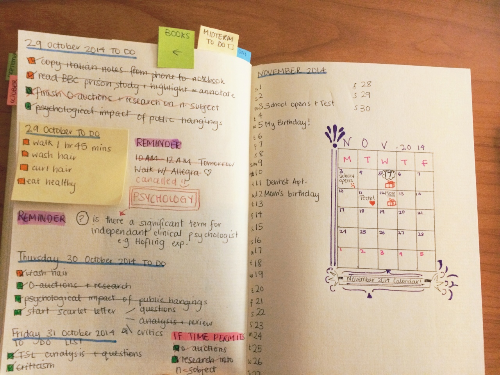 BOOKS
MIDTERM
TO DO!
29 OCTOBER 2014 TO DO
copy Italian notes from phone to notebook
read BBC prison study + highlight + annotate
finish O-auctions + research on n subject
psychological impact of public hangings
29 OCTOBER TO DO
walk 1 hr 45 mins
wash hair
curl hair
eat healthy
REMINDER
10 AM - 12 AM Tomorrow
Walk w/ Allegra
cancelled
PSYCHOLOGY
REMINDER
is there a significant term for
independant clinical psychologist
e.g Hofling exp.
Thursday 30 OCTOBER 2014 TO DO
wash hair
O-auctions + research
psychological impact of public hangings
start scarlet letter
questions
analysis + review
critics
Friday 31 OCTOBER 2014
TO DO LIST
TSL analysis + questions
criticism
IF TIME PERMITS
o-auctions
research into
n-subject
NOVEMBER 2014
1
2
3 School opens + Test
5 My Birthday!
6
7
8
9
10
11 Dentist Apt.
12 Mom's birthday
13
14
15
16
17
18
19
20
21
22
23
24
25
26
28
29
30
N O V - 2014
M T W T F
November 2014 Calendar